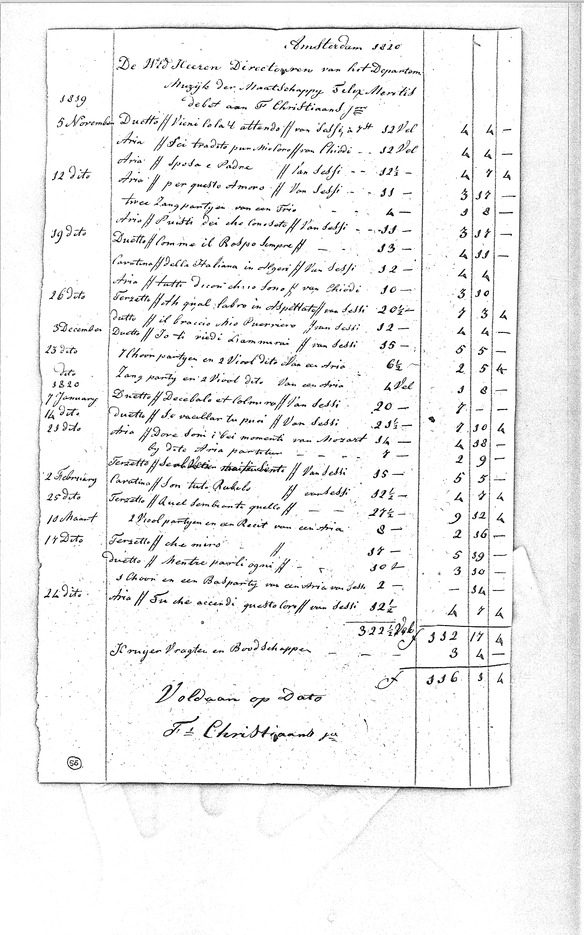 Amsterdam 1820
De Wed Heeren Directeuren van het Departem
Muzijk der Maatschappy Felix Meritis
debet aan F Christiaans jr
1819
5 November Duetto // Vieni Cola t'attendo // van Sessi, 12 Vel 4 4 —
Aria // Sei tradito van Chiodi - - 12 Vel 4 4 —
Aria // Sposa e Padre // Van Sessi - - 12½ — 4 7 4
12 dito Aria // per questo Amoro // Van Sessi - - 11 — 3 17 —
twee Zangpartyen van een Trio - - 4 — 1 8 —
Aria // Giusti dei che // Van Sessi - - 11 — 3 17 —
19 dito Duetto // Comme il Rospo Sempre // - - 13 — 4 11 —
Cavatina // della Italiana in Algeri // Van Sessi 12 — 4 4
Aria // tutti dicon chio sono // van Chiodi 10 — 3 10
26 dito Terzetto // Ah qual labro in Aspettato // van Sessi 20½ — 7 3 4
duetto // il braccio Mio // van Sessi 12 — 4 4 —
3 December Duetto // Io ti riedi // van Sessi 15 — 5 5 —
23 dito 7 Choor partyen en 2 Viool dito Van een Aria 6½ — 2 5 4
dito Zang party en 2 Viool dito Van een Aria 4 Vel 1 8 —
1820
7 January Duetto // Decebalo et // Van Sessi 20 — 7 - —
14 dito duetto // Se vacillar tu puoi // Van Sessi 21½ — 7 10 4
21 dito Aria // Dove Sono i bei momenti van Mozart 14 — 4 18 —
by dito Aria partituur — 7 — 2 9 —
Terzetto // // Van Sessi 15 — 5 5 —
2 February Cavatina // Son tuto // van Sessi 12½ — 4 7 4
25 dito Terzetto // Quel Sembiante quello // — 27½ — 9 12 4
10 Maart 2 Viool partyen en een Recit van een Aria 8 — 2 16 —
17 Dito Terzetto // che miro - // 17 — 5 19 —
duetto // Mentre parli ogni // - 10 — 3 10 —
1 Choor en een Basparty van een Aria van Sessi 2 — — 14 —
24 dito Aria // Tu che accendi questo Cor // van Sessi 12½ 4 7 4
322½ Vel f 112 17 4
Kruyer Vragten en Boodschappen - - - 3 4 —
f 116 1 4
Voldaan op Dato
Fs Christiaans jr
56